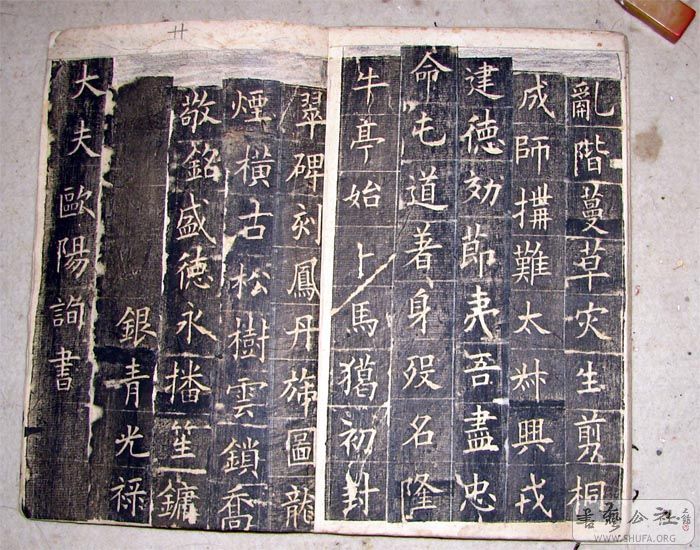 亂階蔓草灾生剪桐
成師搆難太叔興戎
建德効節夷吾盡忠
命屯道著身歿名隆
牛亭始卜馬獦初封
翠碑刻鳳丹旐圖龍
煙橫古松樹雲鎖喬
敬銘盛德永播笙鏞
銀青光祿
大夫歐陽詢書
書藝公社
WWW.SHUFA.ORG